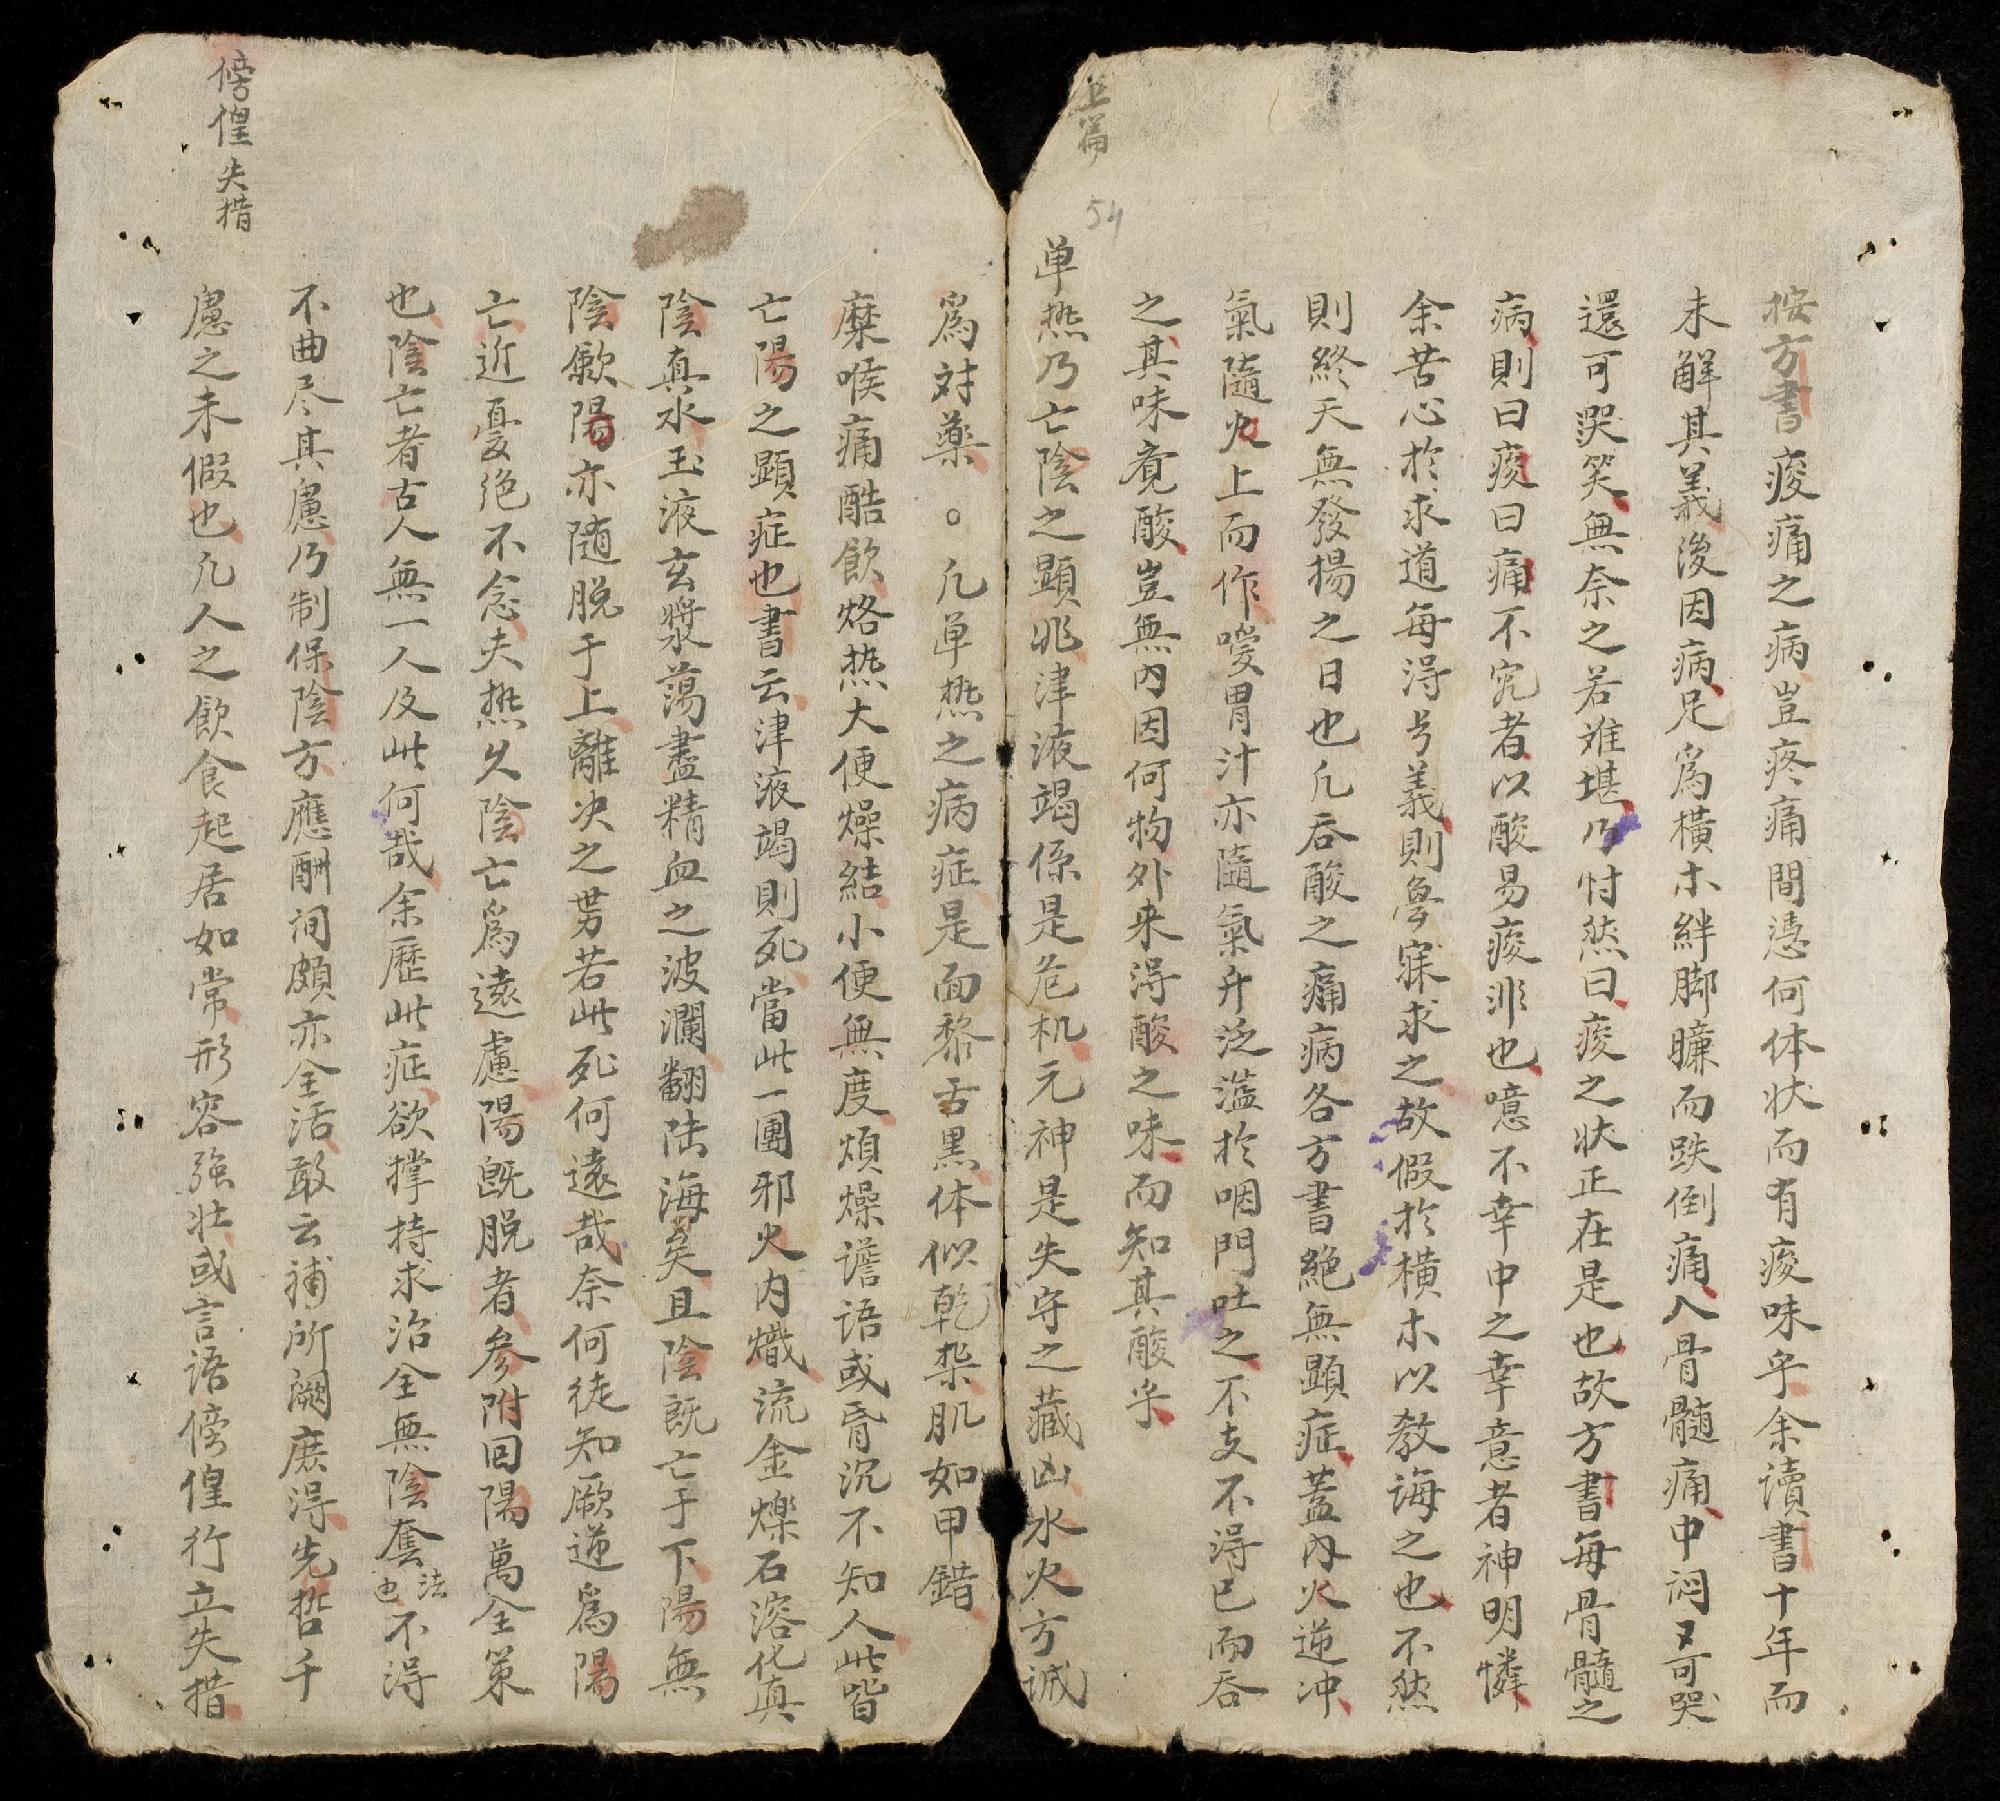 上篇
54
按方書痠痛之病豈疼痛間憑何体状而有痠味乎余讀書十年而
未觧其義後因病足爲横木絆脚臁而跌倒痛入骨髓痛中闷又可哭
還可哭笑無奈之若难堪乃忖然曰痠之状正在是也故方書每骨髓之
病則曰痠曰痛不究者以酸易痠非也噫不幸中之幸意者神明憐
余苦心於求道每淂号義則夢寐求之故假於横木以教誨之也不然
則終天無發揚之日也凢吞酸之痛病各方書絶無顕症蓋内火逆冲
氣隨火上而作嗳胃汁亦隨氣升泛溢於咽門吐之不支不淂已而吞
之其味竟酸豈無内因何物外来淂酸之味而知其酸乎
单热乃亡陰之顕兆津液竭係是危机元神是失守之藏凶水火方誠
爲対藥。凢单热之病症是面黎舌黒体似乾柴肌如甲錯
糜喉痛酷飲烙热大便燥結小便無度煩燥譫语或昏沉不知人此皆
亡陽之顕症也書云津液竭則死當此一團邪火内熾流金爍石溶化真
陰真水玉液玄漿蕩盡精血之波瀾翻陆海矣且陰既亡于下陽無
陰歛陽亦随脱于上離决之势若此死何遠哉奈何徒知厥逆爲陽
亡近憂绝不念夫热久陰亡爲遠慮陽既脱者参附回陽萬全策
也陰亡者古人無一人及此何哉余歷此症欲撑持求治全無陰套法也不淂
不曲尽其慮乃制保陰方應酬间頗亦全活敢云補所闕庶淂先哲千
慮之未假也凢人之飲食起居如常形容強壮或言语傍偟行立失措
傍偟失措